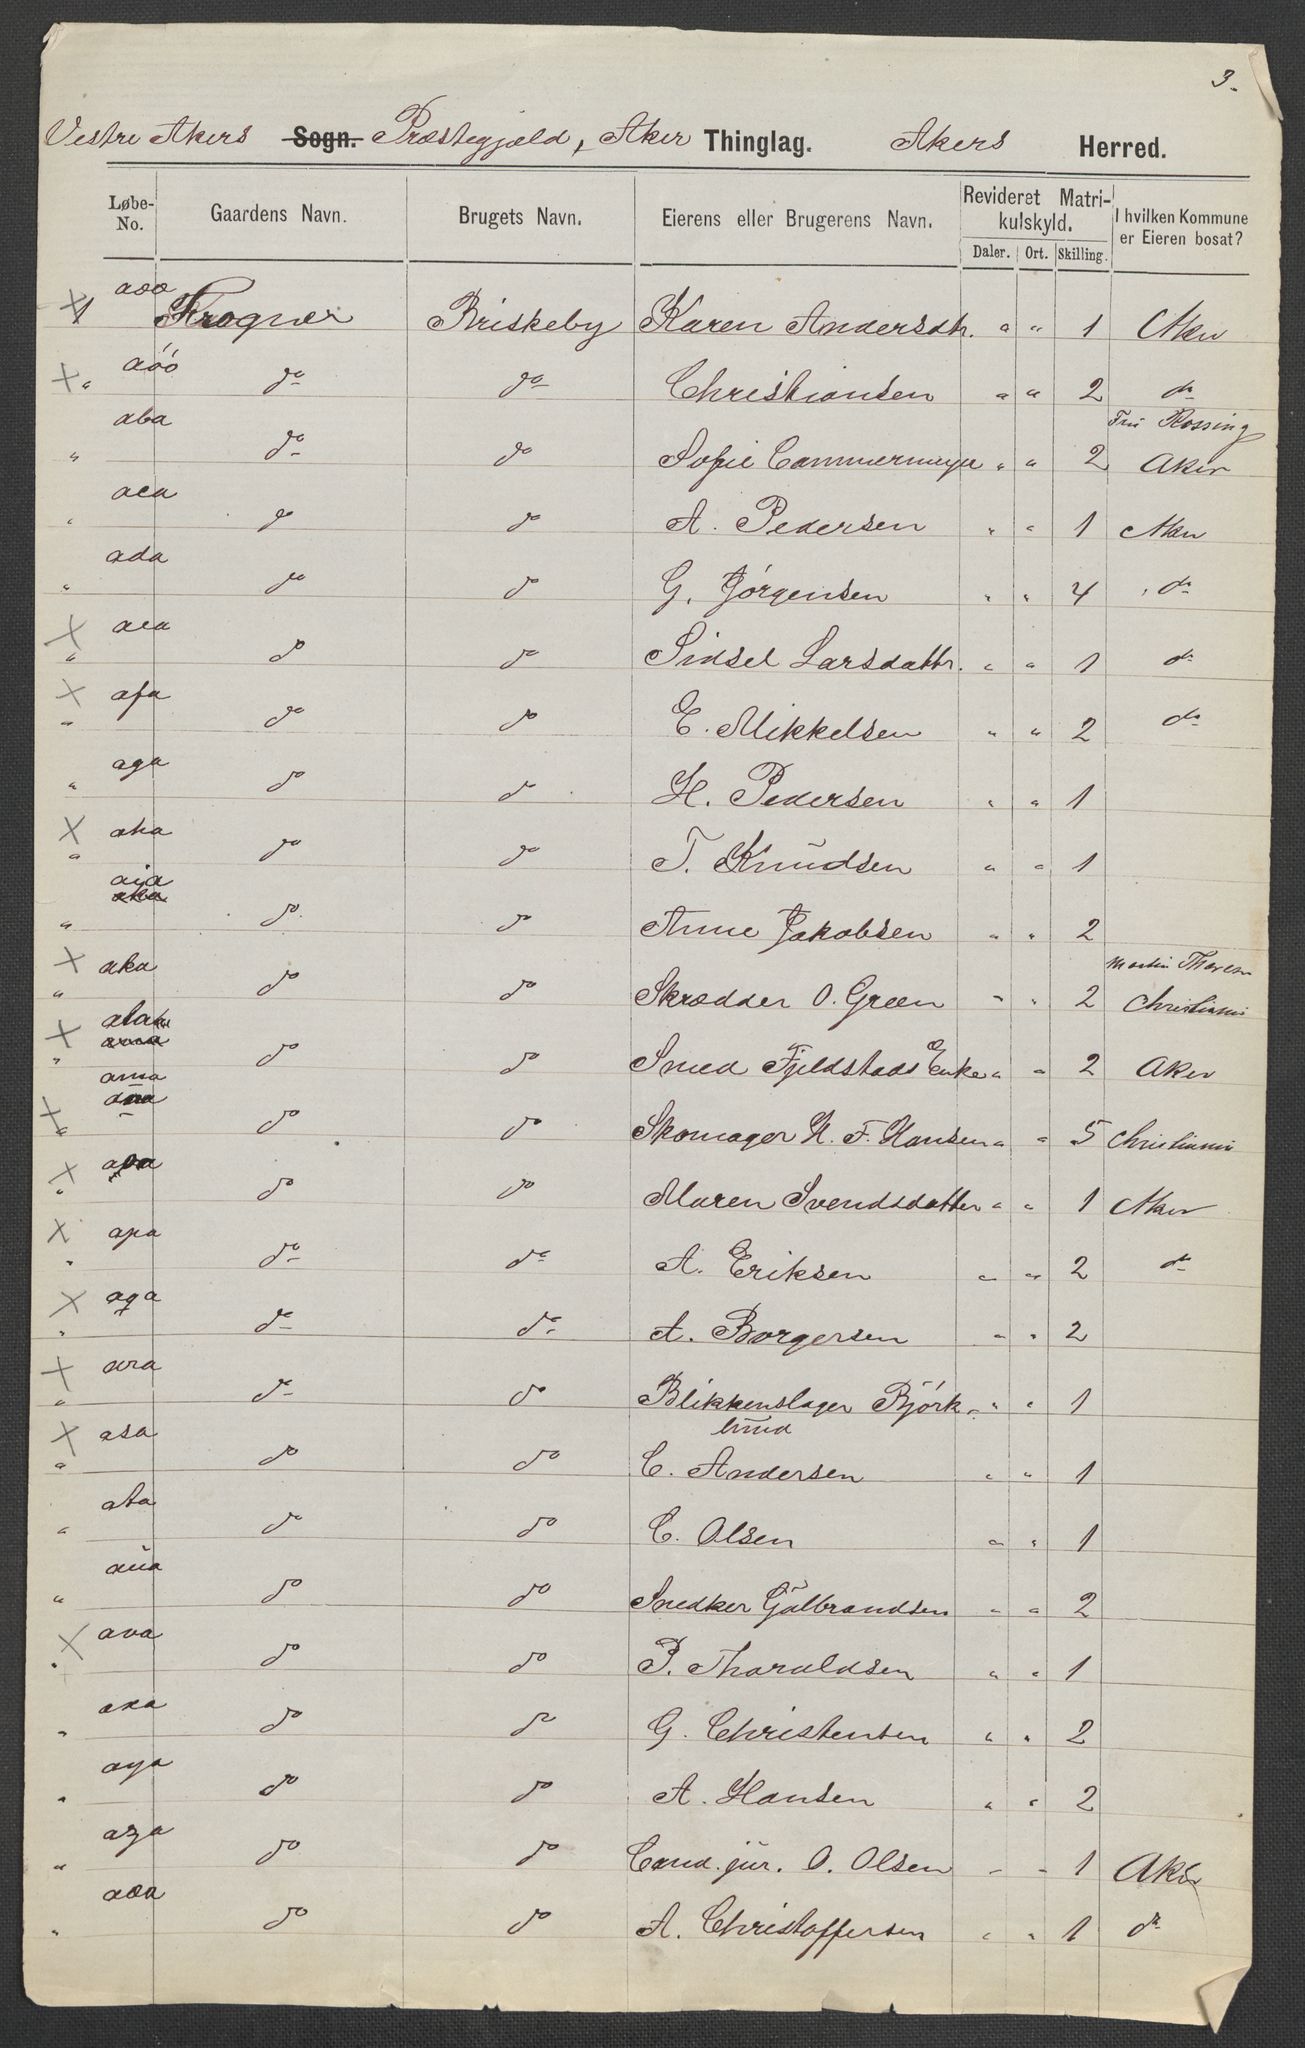 3.
Vestre Akers Sogn. Præstegjæld, Aker Thinglag. Akers Herred.
Løbe-No. Gaardens Navn. Brugets Navn. Eierens eller Brugerens Navn. Revideret Matrikulskyld. Daler. Ort. Skilling. I hvilken Kommune er Eieren bosat?
aoo
X 1 Frogner Briskeby Karen Andersdtr. " " 1 Aker
aóó
X " do do Christiansen " " 2 do
aba Fru Rossing
" do do Sofie Cammermeyer " " 2 Aker
aca
" do do A. Pedersen " " 1 Aker
ada
" do do G. Jörgensen " " 4 do
aea
X " do do Sidsel Larsdattr. " " 1 do
afa
X " do do E. Mikkelsen " " 2 do
aga
" do do H. Pedersen " " 1
aha
X " do do T. Knudsen " " 1
aia
aka
" do do Anne Jakobsen " " 2
aka Martin
X " do do Skrædder O. Green " " 2 Christiania
ala
X " do do Smed Fjeldstads Enke " " 2 Aker
ama
ana
X " do do Skomager H. F. Hansen " " 5 Christiania
aoa
X " do do Maren Svendsdatter " " 1 Aker
apa
X " do do A. Eriksen " " 2 do
aqa
X " do do A. Borgersen " " 2
ara
X " do do Blikkenslager Björk- " " 1
lund
asa
X " do do C. Andersen " " 1
ata
" do do C. Olsen " " 1
aua
" do do Snedker Gulbrandsen " " 2
ava
X " do do P. Tharaldsen " " 1
axa
" do do G. Christensen " " 2
aya
" do do A. Hansen " " 2
aza
" do do Cand. jur. O. Olsen " " 1 Aker
aœa
" do do A. Christoffersen " " 1 do